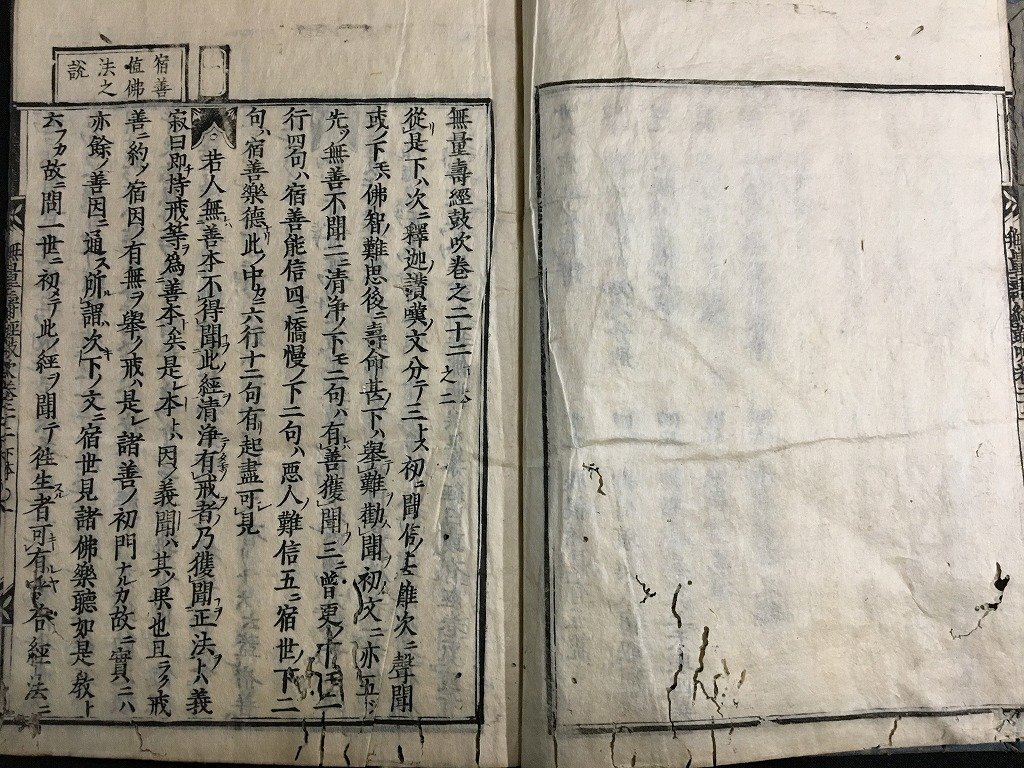 無量壽經鼓吹卷之二十二
從是下ハ次ニ釋迦讃嘆ノ文分テ三トス初ニ聞信ノ次ニ聲聞
或ノ下モハ佛智ノ難思後ニ壽命甚下ハ擧難勸聞初文ニ亦五
先ツ無善不聞二ニ清浄ノ下モ二句ハ有善獲聞三ニ曾更ノ下モ二
行四句ハ宿善能信四ニ憍慢ノ下二句ハ悪人難信五ニ宿世ノ下二
句ハ宿善樂徳此ノ中カニ六行十二句有起盡可見
若人無善本不得聞此經清浄有戒者乃獲聞正法トハ義
寂曰即持戒等為善本矣是レ本トハ因ノ義聞ハ其ノ果也且ラク戒
善ニ約ノ宿因ノ有無ヲ擧ク戒ハ是レ諸善ノ初門ナルカ故ニ實ニハ
亦餘ノ善因ニ通ス所謂次下ノ文ニ宿世見諸佛樂聽如是教ト
六フカ故ニ問一世ニ初テ此ノ經ヲ聞テ徃生スル者可有ルヤ乎答經ノ法ニ
宿善
值佛
法之
說
無量壽經鼓吹卷二十二